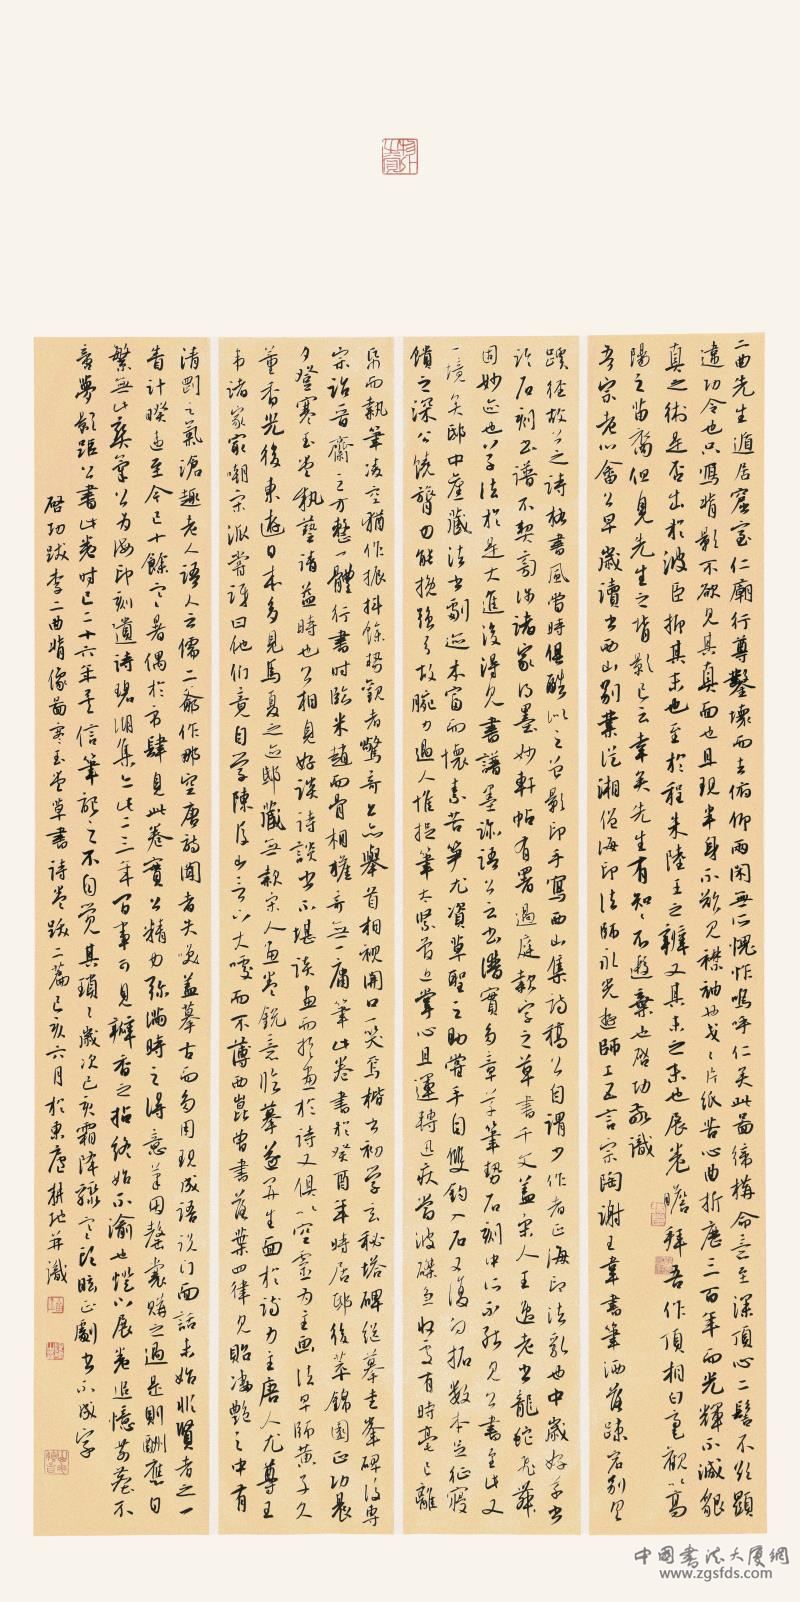 二曲先生遁居窟室仁廟行尊鑿壞而去俯仰兩閑無所愧怍嗚呼仁矣此圖締構命意至深頂心二髻不欲顯
違功令也只寫背影不欲見其真面也且現半身不欲見襟袖也戋〻片紙苦心曲折歷三百年而光輝不滅貌
真之術是否出於波臣抑其末也至於程朱陸王之辯又其末之末也展卷瞻拜吾作頂相白毫觀以蒿
陽之菑裔但見先生之背影已云幸矣先生有知知不遐棄也啓功敬識
吾宗老心畬公早歲讀書西山別業從湘僧海印法師永光遊師工五言宗陶謝王韋書筆洒落疎宕別具
蹊徑故公之詩格書風當時俱酷似之曾影印手寫西山集詩稿公自謂少作者正海印法乳也中歲好學書
於石刻書譜不契諸家得墨妙軒帖有署過庭款字之草書千文蓋宋人王逸老書龍蛇飛舞
固妙迹也公字法於是大進後得見書譜墨跡語公云書譜實多章草筆勢石刻中所不能見公書至此又
一境矣邸中舊藏法書劇迹而懷素苦笋尤資草聖之助嘗手自雙鈎入石又復自拓數本足征寢
饋之深公饒膂力能挽強弓故腕力過人惟捉筆太緊管近掌心且運轉迅疾當波磔急處有時毫已離
帋而執筆凌空猶作振抖餘勢觀者驚奇公亦舉首相視開口一笑焉楷書初學玄秘塔碑從摹圭峯碑後專
宗詒晉齋工力方整一體行書時臨米趙而骨相權奇無一庸筆此卷書於癸酉年時居邸後萃錦園正功晨
夕登寒玉堂執藝請益時也公相見好談詩談書不堪談畫而於畫於詩又俱以空靈為主畫法早師黃子久
董香光後東遊日本多見馬夏之迹邸藏無款宋人畫卷銳意臨摹遂另生面於詩力主唐人尤尊王
韦諸家最嘲宋派嘗謂曰他們竟自学陳後山言下大噱而不薄西崑曾書落葉四律見貽凄艷之中有
清剛之氣滄趣老人語人云儒二爺作那空唐詩聞者失笑蓋摹古而多用現成語説门面話未始非賢者之一
眚計睽違至今已十餘寒暑偶於市肆見此卷實公精力弥滿時之得意筆因罄囊購之過是則酬應日
繁無此奕筆公为海印刻遺詩碧湖集亦此二三年间事可見瓣香之拈終始不渝也燈下展卷追憶前塵不
啻夢影距公書此卷时已二十六年矣信筆記之不自覺其瑣〻歲次己亥霜降驟寒頭眩正劇書不成字
啓功跋李二曲背像圖寒玉堂草書詩卷跋二篇己亥六月於東廬耕地并識
中國書法大厦網
www.zgsfds.com